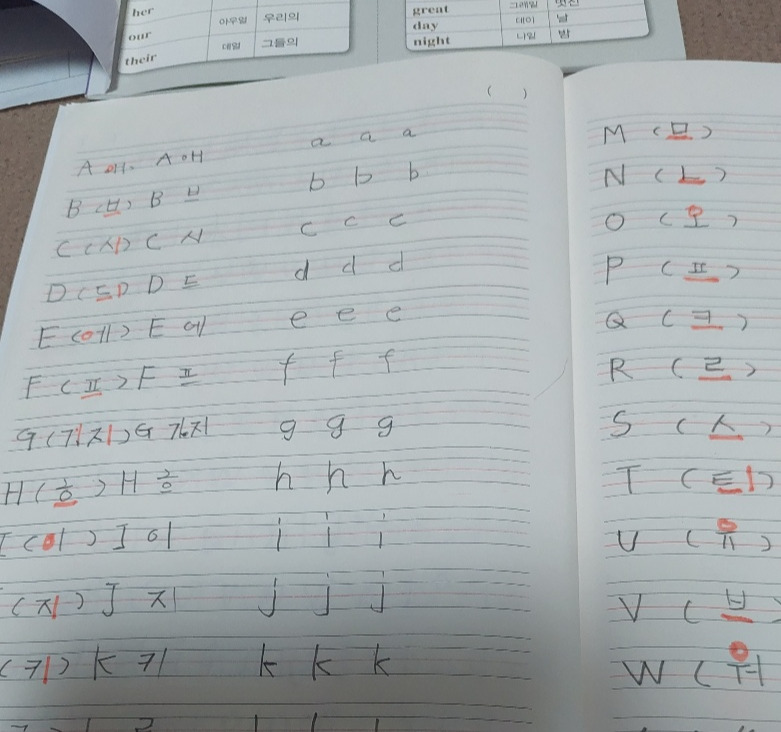 her
our 아우얼 우리의
their 데얼 그들의
great 그레일 멋진
day 데이 날
night 나잍 밤
( )
A 애. A 애 a a a
B (브) B 브 b b b
C (시) C 시 c c c
D (드) D 드 d d d
E (에) E 에 e e e
F (프) F 프 f f f
G (기지) G f f f
H (흐) H 흐 h h h
I (이) I 이 i i i
(지) J 지 j j j
(키) K 키 k k k
M (므)
N (느)
O (오)
P (프)
Q (크)
R (르)
S (스)
T (트)
U (유)
V (브)
W (워